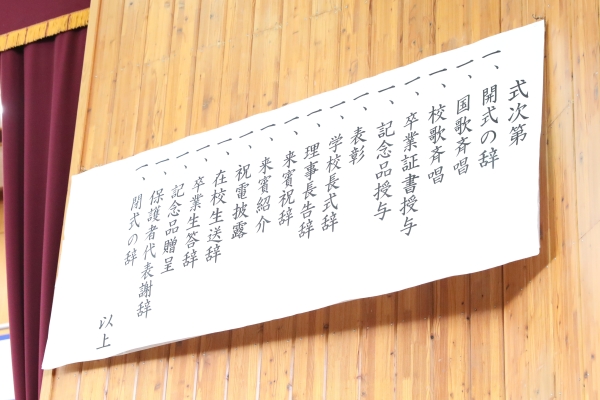 式次第
一、開式の辞
一、国歌斉唱
一、校歌斉唱
一、卒業証書授与
一、記念品授与
一、表彰
一、学校長式辞
一、理事長告辞
一、来賓祝辞
一、来賓紹介
一、祝電披露
一、在校生送辞
一、卒業生答辞
一、記念品贈呈
一、保護者代表謝辞
一、閉式の辞
以上